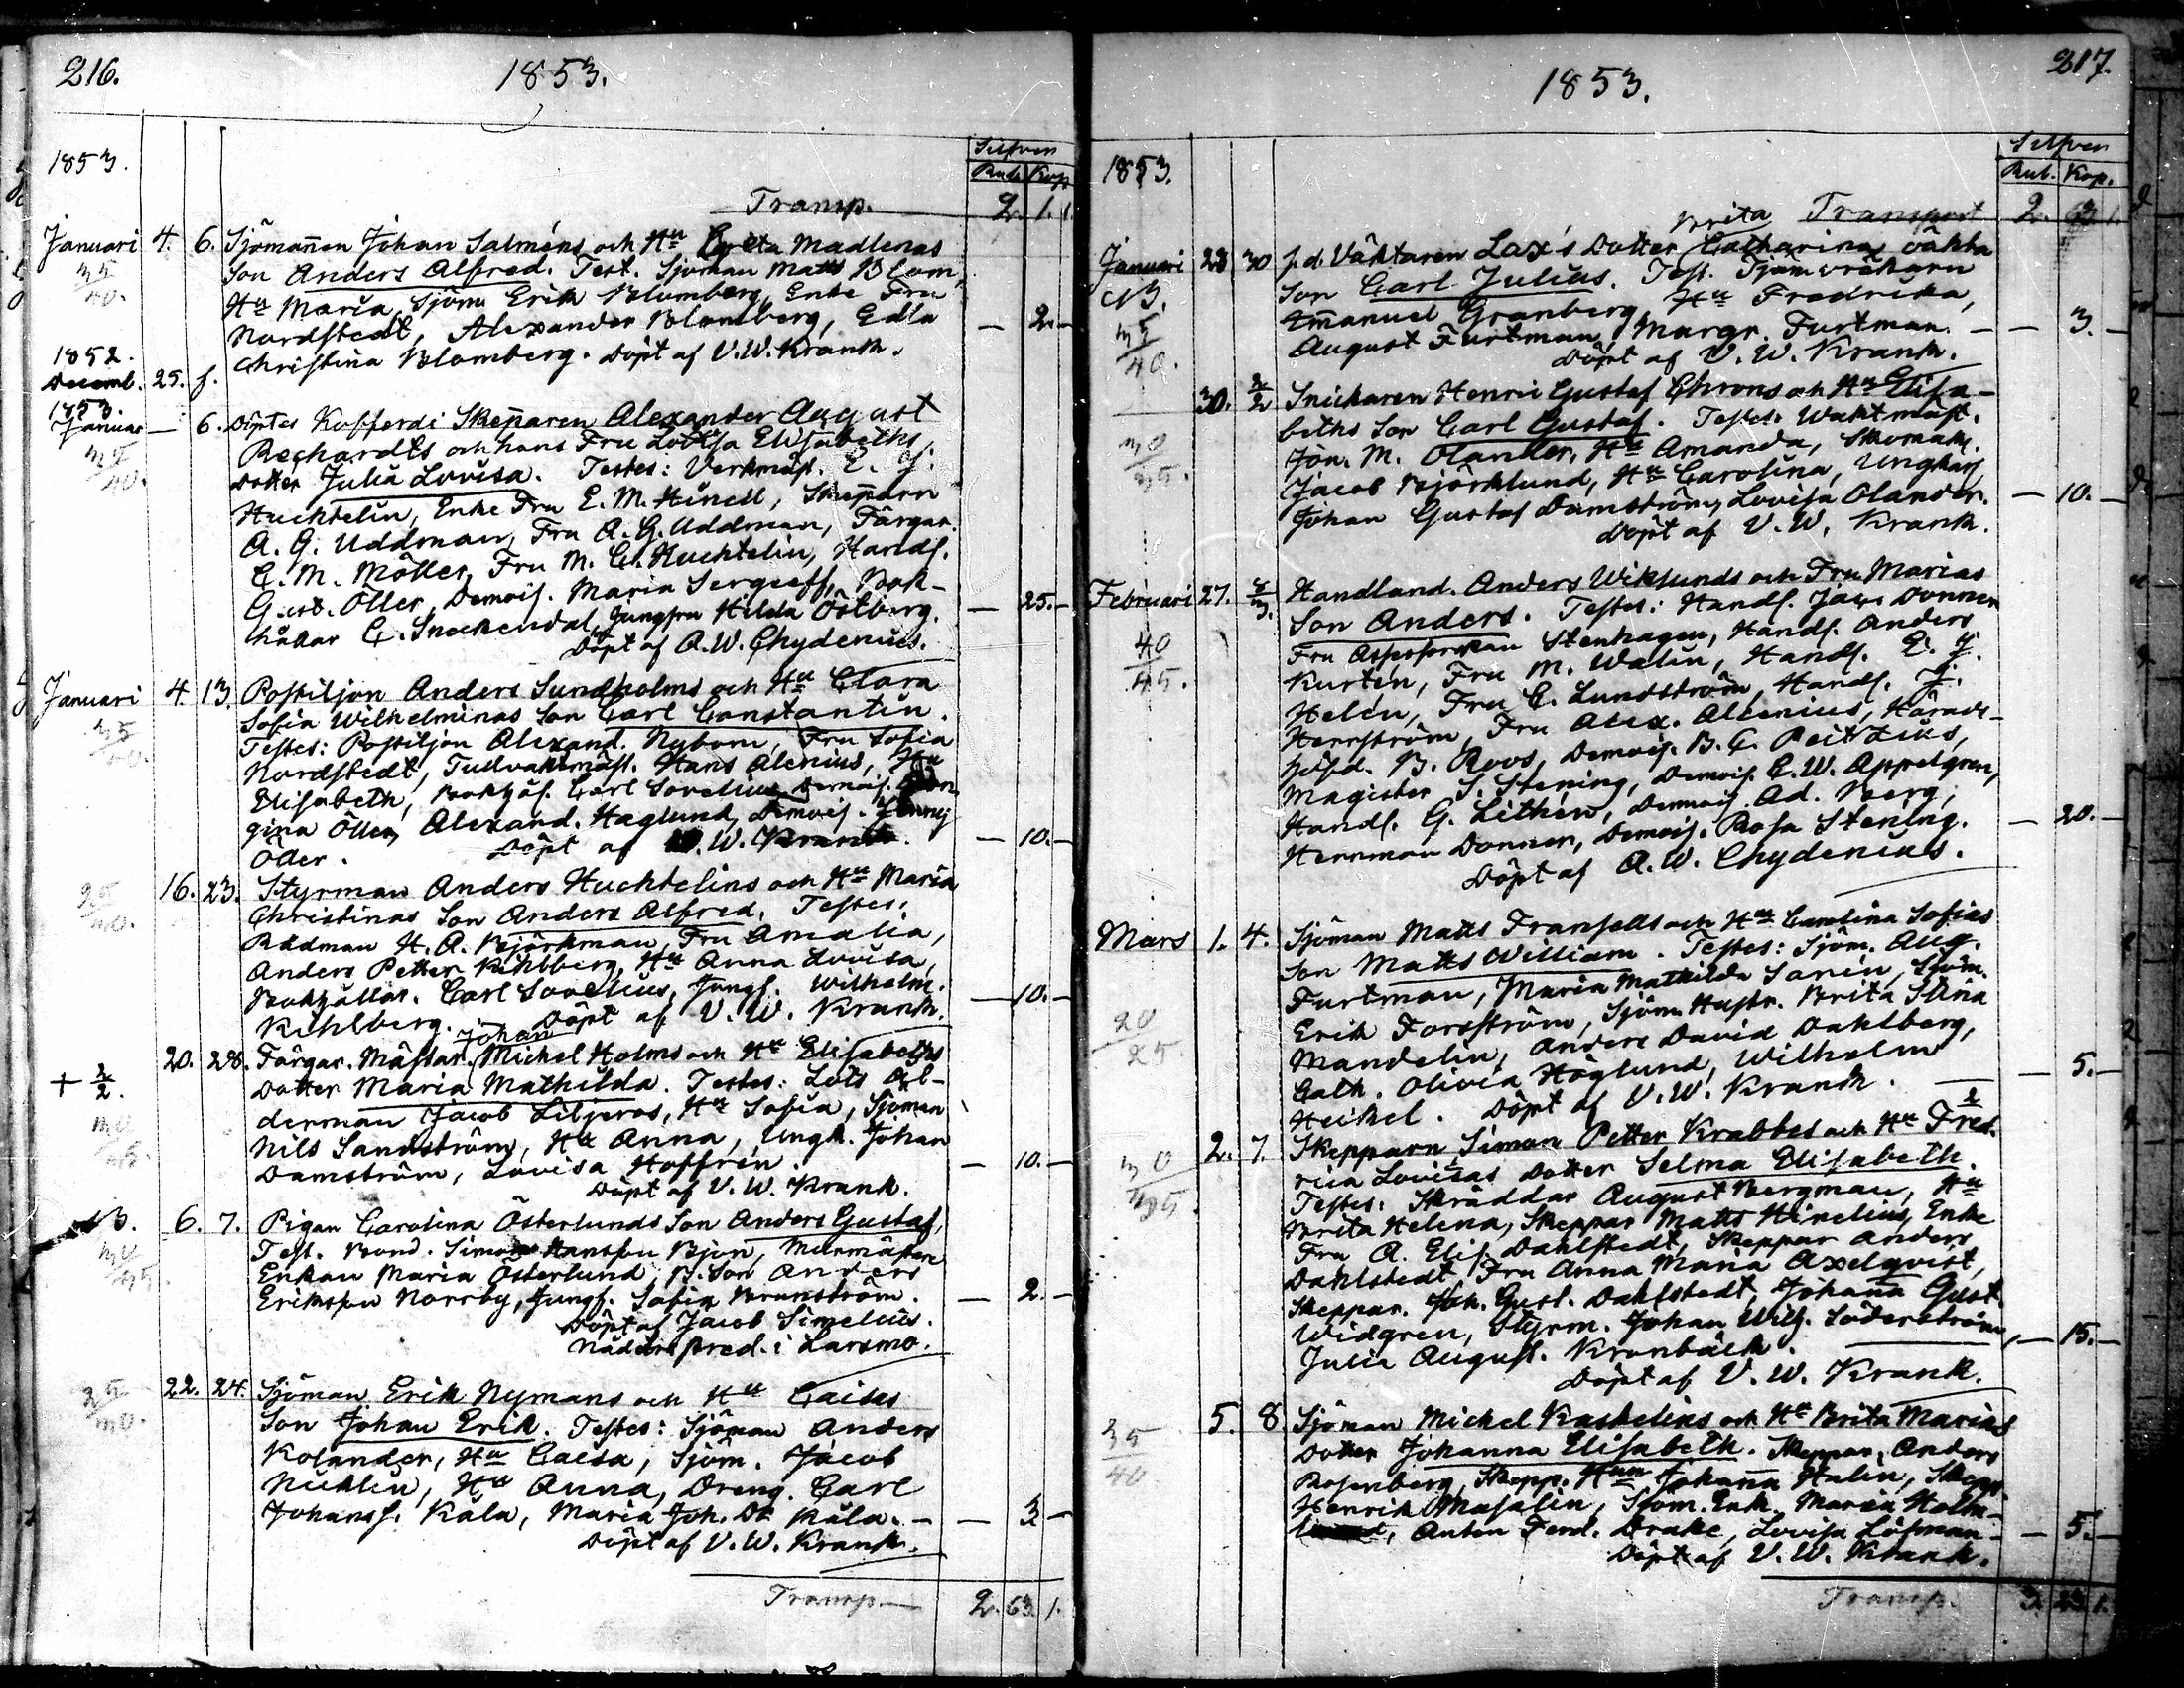 216.
1853.
1853.
Silfver
Rub. Kop.
Transp. 2. 1. 1.
Januari 4. 6. Sjömannen Johan Salméns och Hu Greta Madlenas
35/40. Son Anders Alfred. Test. Sjöman Matts Blom,
Hu Maria, Sjöm. Erik Blomberg, Enke Fru
Nordstedt, Alexander Blomberg, Edla — 2. —
Christina Blomberg. Döpt af V. W. Krank.
1852.
Decemb. 25. f.
1853.
Januar — 6. Döptes Kofferdi Skepparen Alexander August
35/40. Rechardts och hans Fru Lovisa Elisabeths
Dotter Julia Lovisa. Testes: Verkmäst. E. J.
Huchtelin, Enke Fru E. M. Hinell, Skepparn
A. G. Uddman, Fru A. G. Uddman, Färgar.
C. M. Möller, Fru M. C. Huchtelin, Handl.
Gust. Öller, Demois. Maria Sergeeff, Bok-
hållar C. Snockendal, Jungfru Hilda Östberg. — 25. —
Döpt af A. W. Chydenius.
Januari 4. 13. Postiljon Anders Sundholms och Hu Clara
35/40. Sofia Wilhelminas Son Carl Constantin.
Testes: Postiljon Alexand. Nybom, Fru Sofia
Nordstedt, Tullvaktmäst. Hans Alenius, Hu
Elisabeth, Bokhål. Carl Sovelius, Demois.
gina Öller, Alexand. Haglund, Demois. Fanny
Öller. Döpt af V. W. Krank. — 10. —
16. 23. Styrman Anders Huchtelins och Hu Maria
25/30. Christinas Son Anders Alfred. Testes:
Rådman H. A. Björkman, Fru Amalia,
Anders Petter Kihlberg, Hu Anna Lovisa,
Bokhållar. Carl Sovelius, Jungf. Wilhelm. — 10. —
Kihlberg. Döpt af V. W. Krank.
Johan
20. 28. Färgar. Mästar. Michel Holms och Hu Elisabeths
+ 2/2. Dotter Maria Mathilda. Testes: Lots Ål-
derman Jacob Liljeros, Hu Sofia, Sjöman
Nils Sandström, Hu Anna, Ungk. Johan
Damström, Lovisa Hoffrén. — 10. —
Döpt af V. W. Krank.
6. 7. Pigan Carolina Österlunds Son Anders Gustaf,
Test. Bond. Simon Hansson Bjon, Murmästar
Enkan Maria Österlund, B. Son Anders
Eriksson Norrby, Jungf. Sofia Brunström. — 2. —
Döpt af Jacob Simelius.
Nådårs pred. i Larsmo.
22. 24. Sjöman Erik Nymans och Hu Caisas
25/30. Son Johan Erik. Testes: Sjöman Anders
Kolander, Hu Caisa, Sjöm. Jacob
Nicklin, Hu Anna, Dreng. Carl
Johanss. Kåla, Maria Joh. Dr Kåla. — 3. —
Döpt af V. W. Krank.
Transp. 2. 63. 1.
217.
1853.
1853.
Silfver
Rub. Kop.
Transport 2. 63. 1.
Brita
Januari 28 30 f. d. Väktaren Lax's Dotter Catharinas oäkta
Son Carl Julius. Test. Tjäruvräkarn
35/40. Emanuel Granberg, Hu Fredrika,
August Furtman, Margr. Furtman. — 3. —
Döpt af V. W. Krank.
30. 2/2 Snickaren Henric Gustaf Chrons och Hu Elisa-
30/35. beths Son Carl Gustaf. Testes: Waktmäst.
Jon. M. Olander, Hu Amanda, Skomak.
Jacob Björklund, Hu Carolina, Ungkarl
Johan Gustaf Damström, Lovisa Olander. — 10. —
Döpt af V. W. Krank.
Februari 27. 4/3. Handland. Anders Wiklunds och Fru Marias
40/45. Son Anders. Testes: Handl. Jac. Donner
Fru Assessorskan Stenhagen, Handl. Anders
Kurtén, Fru M. Walin, Handl. E. J.
Helén, Fru C. Lundström, Handl. J.
Herrström, Fru Alex. Alcenius, Härads-
höfd. B. Roos, Demois. B. C. Peitzius,
Magister S. Stening, Demois. C. W. Appelgren,
Handl. G. Lithén, Demois. Ad. Berg,
Herrman Donner, Demois. Rosa Stening. — 20. —
Döpt af A. W. Chydenius.
Mars 1. 4. Sjöman Matts Fransells och Hu Carolina Sofias
20/25. Son Matts William. Testes: Sjöm. Aug.
Furtman, Maria Mathilda Sarin, Sjöm.
Erik Forsström, Sjöm. Hustr. Brita Stina
Mandelin, Anders David Dahlberg,
Cath. Olivia Höglund, Wilhelm — 5. —
Heikel. Döpt af V. W. Krank.
2. 7. Skepparn Simon Petter Krabbes och Hu Fred-
30/35. rica Lovisas Dotter Selma Elisabeth.
Testes: Skräddar August Bergman, Hu
Brita Helena, Skeppar Matts Hinelius, Enke
Fru A. Elis. Dahlstedt, Skeppar Anders
Dahlstedt, Fru Anna Maria Axelqvist,
Skeppar. Joh. Gust. Dahlstedt, Johana Gust.
Widgren, Styrm. Johan Wilh. Söderström, — 15. —
Julia August. Kronbäck.
Döpt af V. W. Krank.
5. 8. Sjöman Michel Kaskelins och Hu Brita Marias
35/40. Dotter Johanna Elisabeth. Skeppar. Anders
Rosenberg, Skepp. Hun Johana Halin, Skepp.
Henrik Masalin, Sjöm. Enk. Maria Holm-
Anton Ferd. Drake, Lovisa Löfman — 5. —
Döpt af V. W. Krank.
Transp. 3. 23. 1.